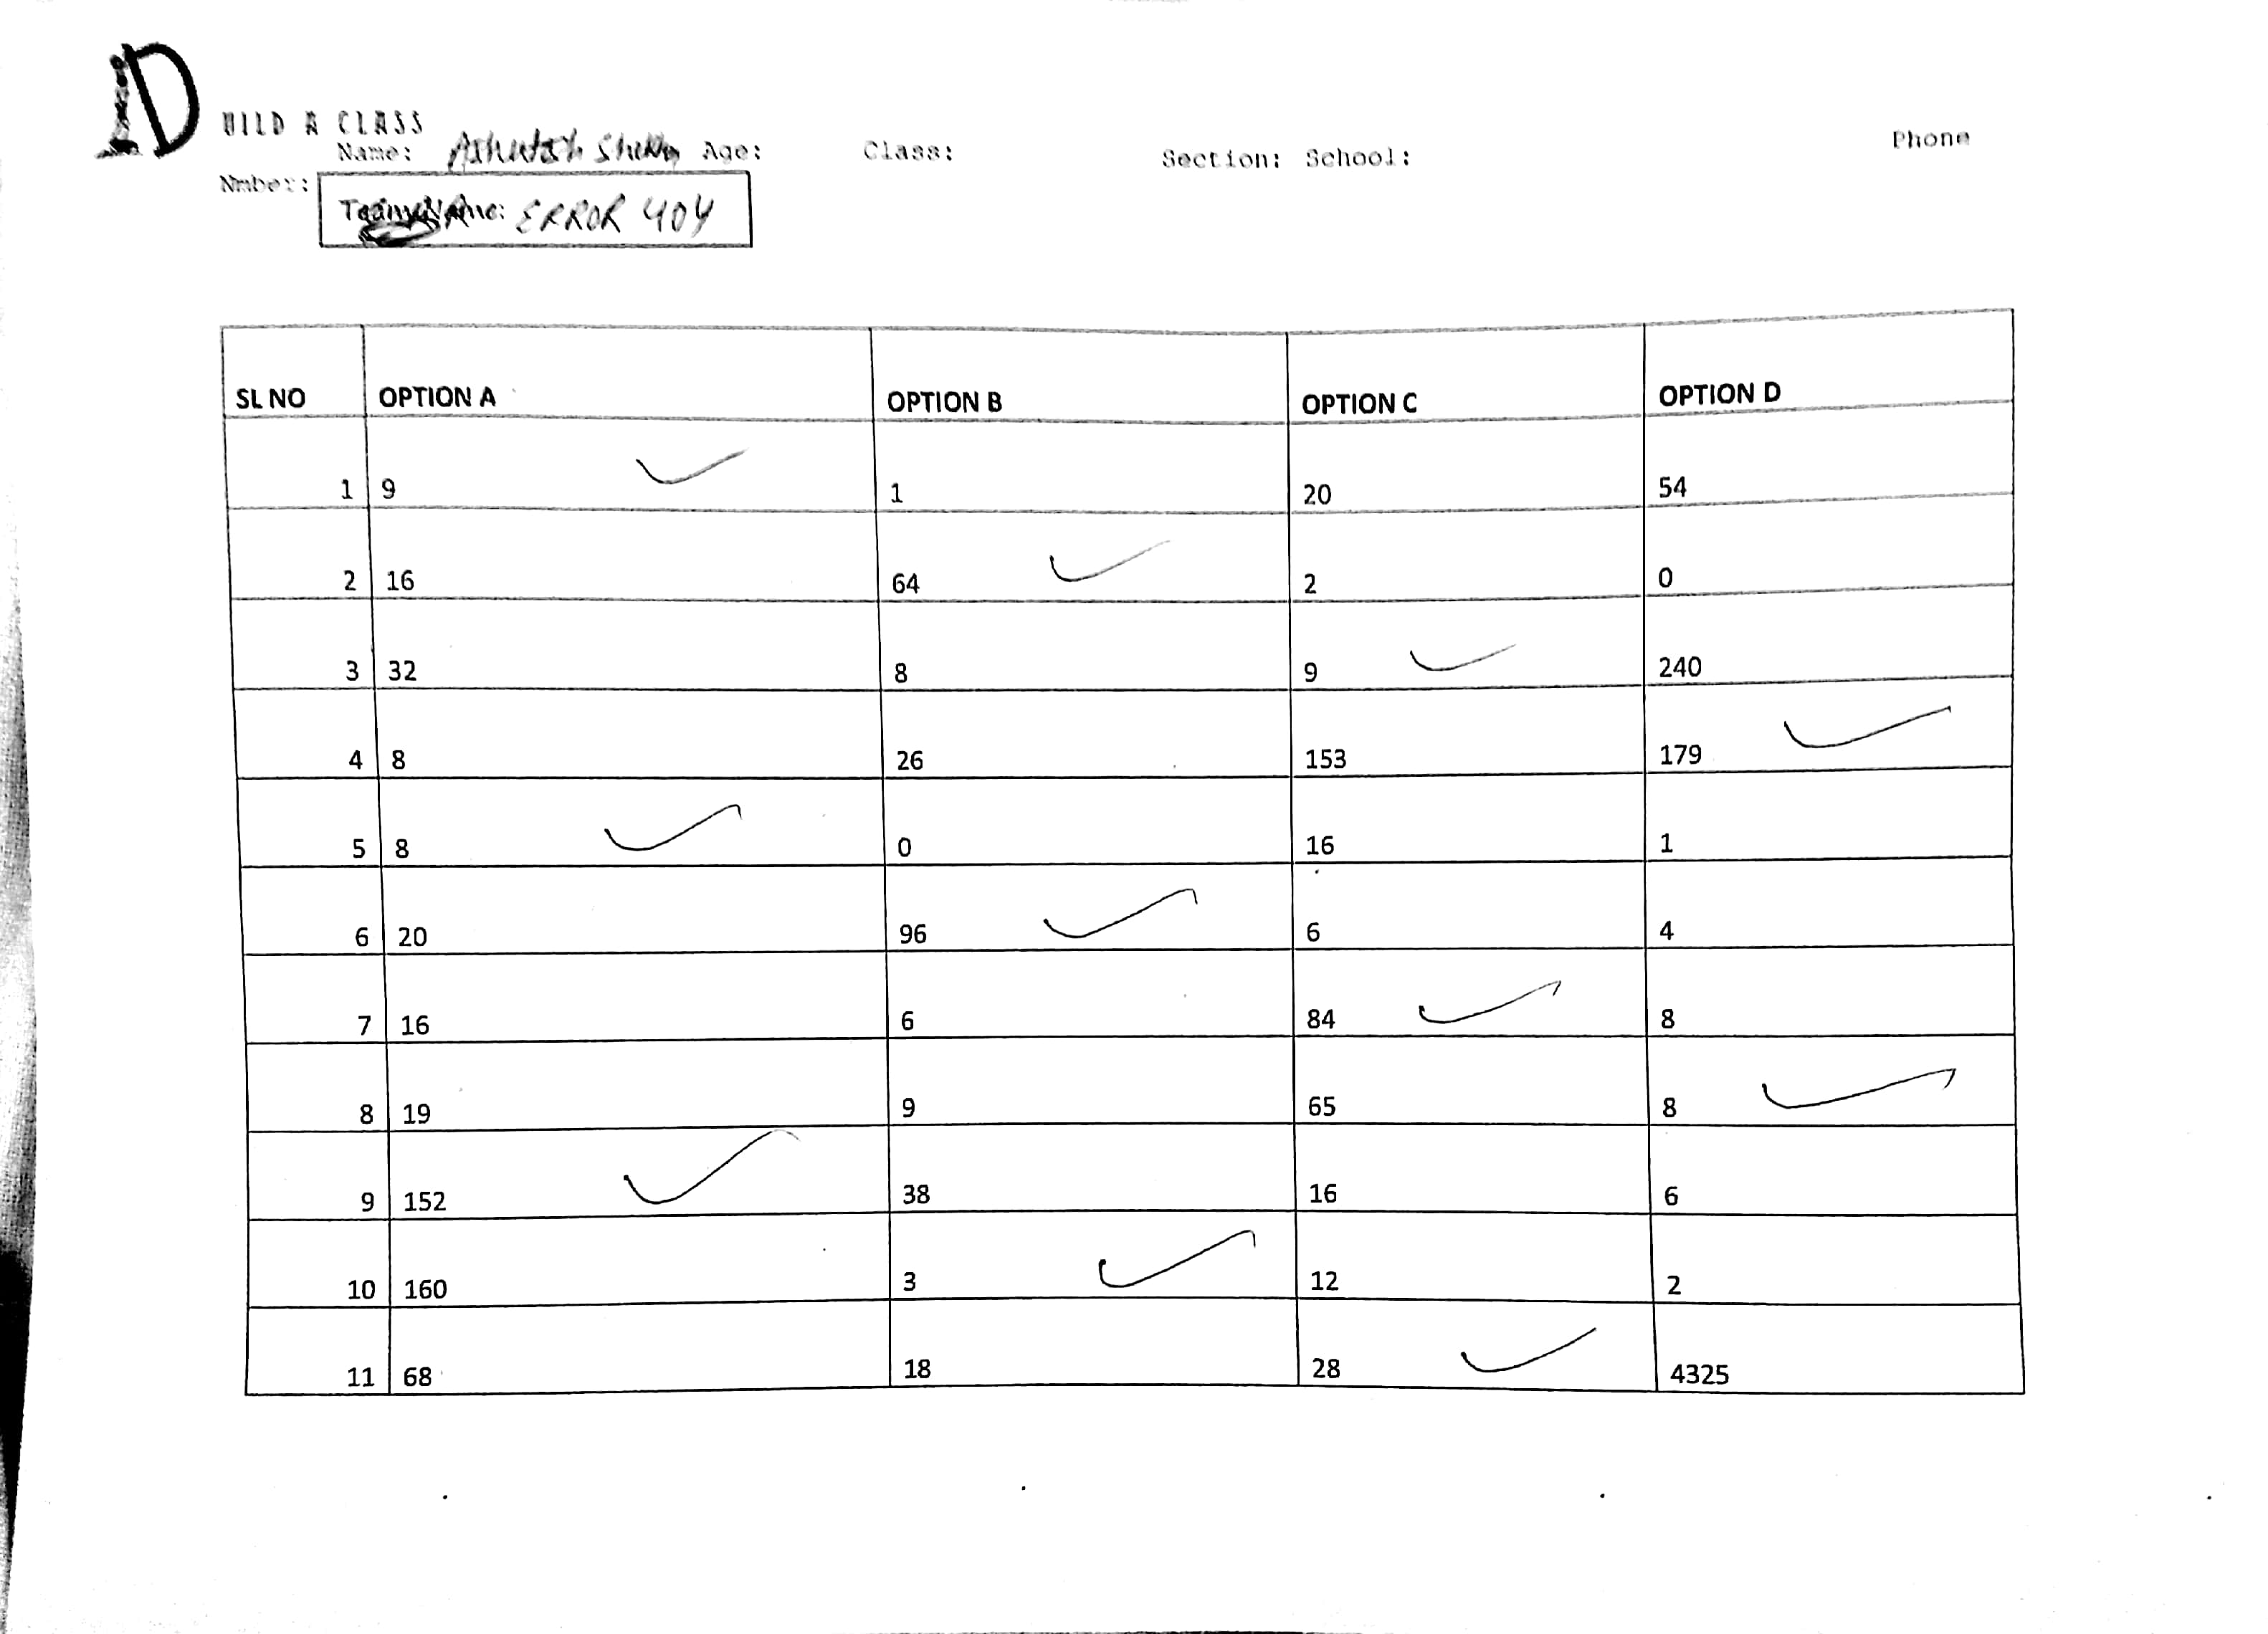 UILD A CLASS
Name: Age: Class: Section: School: Phone
Nmber:
Team Name: ERROR 404
SL NO OPTION A OPTION B OPTION C OPTION D
1 9 1 20 54
2 16 64 2 0
3 32 8 9 240
4 8 26 153 179
5 8 0 16 1
6 20 96 6 4
7 16 6 84 8
8 19 9 65 8
9 152 38 16 6
10 160 3 12 2
11 68 18 28 4325